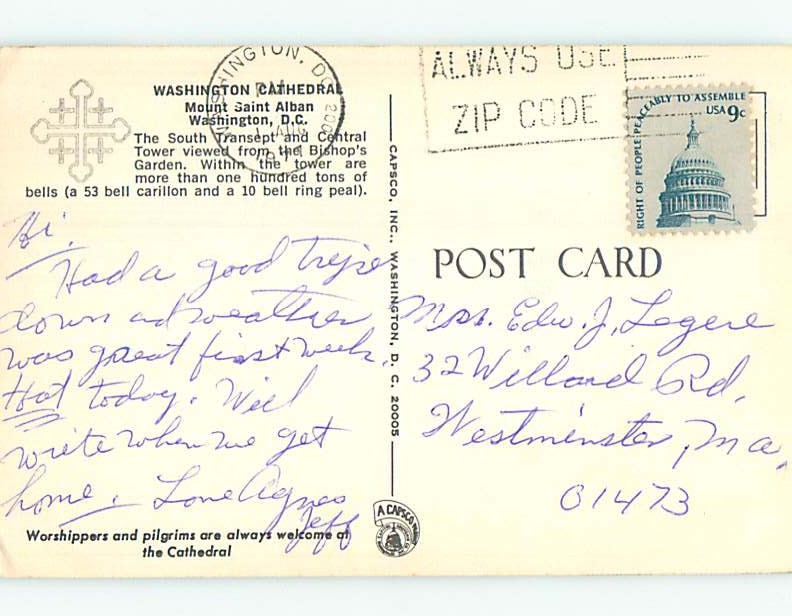 WASHINGTON, DC 200
PM
ALWAYS USE
ZIP CODE
RIGHT OF PEOPLE PEACEABLY TO ASSEMBLE
USA 9c
WASHINGTON CATHEDRAL
Mount Saint Alban
Washington, D.C.
The South Transept and Central
Tower viewed from the Bishop's
Garden. Within the tower are
more than one hundred tons of
bells (a 53 bell carillon and a 10 bell ring peal).
Hi.
Had a good trip
down and weather
was great first week.
Hot today. Will
write when we get
home. Love Agnes
Jeff
Worshippers and pilgrims are always welcome at
the Cathedral
CAPSCO, INC., WASHINGTON, D. C. 20005
A CAPSCO
POST CARD
Mrs. Edw. J. Legere
32 Willard Rd.
Westminster, Ma.
01473